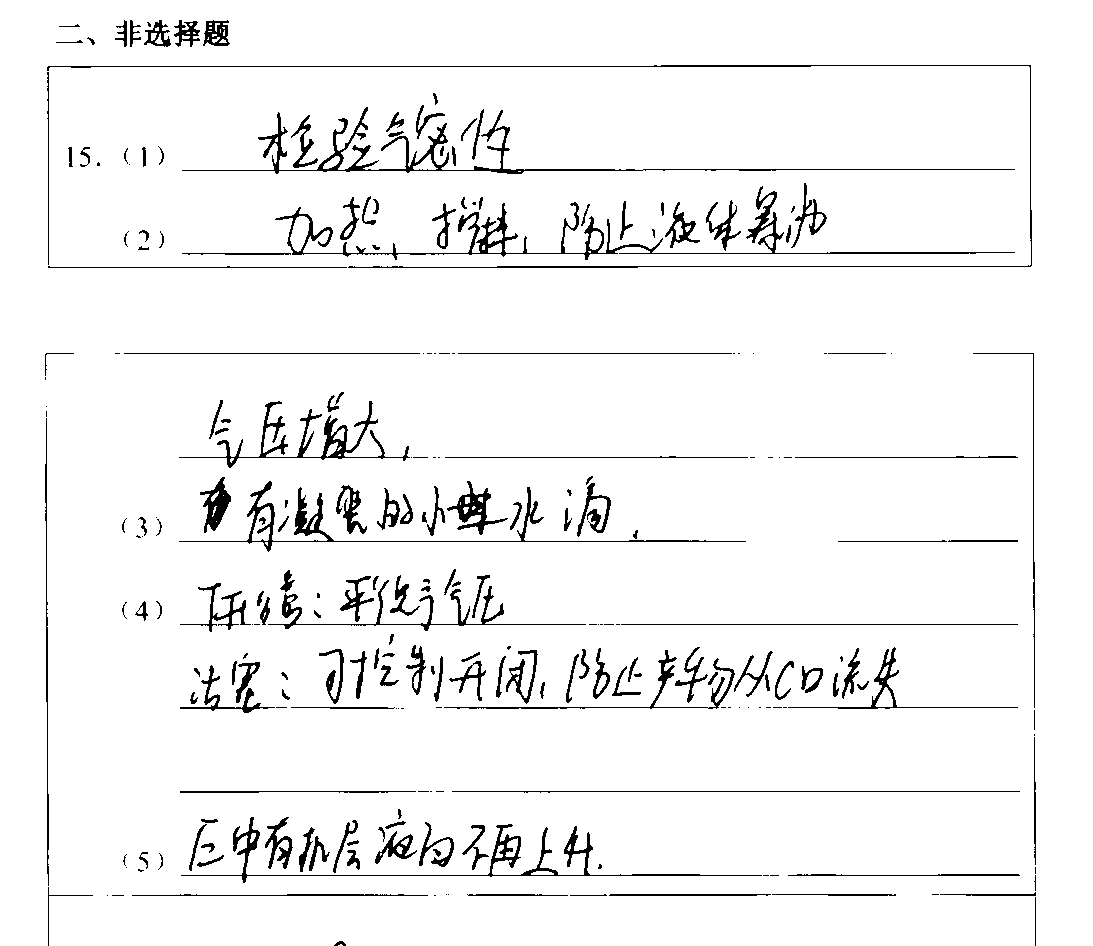 二、非选择题
15.（1） 检验气密性
（2） 加热, 搅拌, 防止液体暴沸
气压增大,
（3） 有凝聚的小水滴,
（4） 下侧管：平衡气压
活塞：可控制开闭, 防止产物从C口流失
（5） E中有机层液面不再上升.